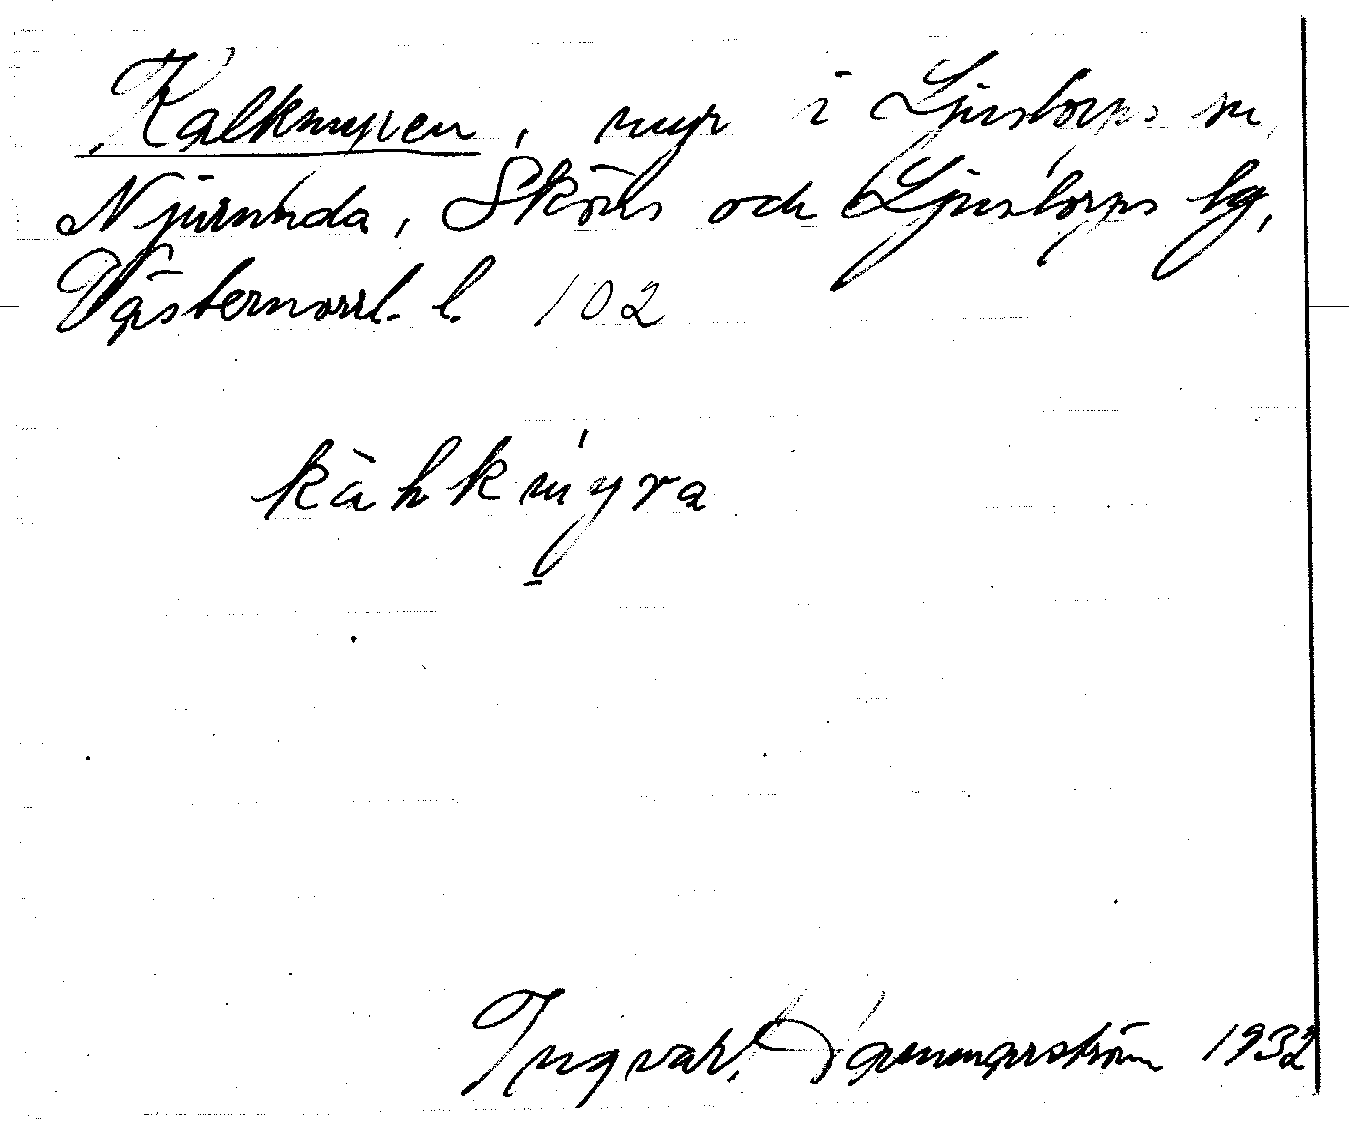 Kalkmyren, myr i Ljustorps sn,
Njurunda, Sköns och Ljustorps tg,
Västernorrl. l. 102
kàhkmýra
Ingvar Dannerström 1932